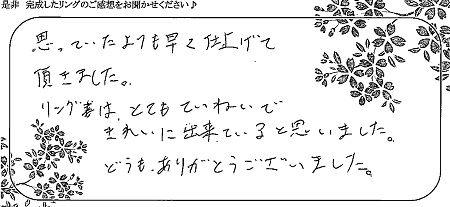 是非 完成したリングのご感想をお聞かせください♪
思っていたよりも早く仕上げて
頂きました。
リング等は、とてもていねいで
きれいに出来ていると思いました。
どうも、ありがとうございました。